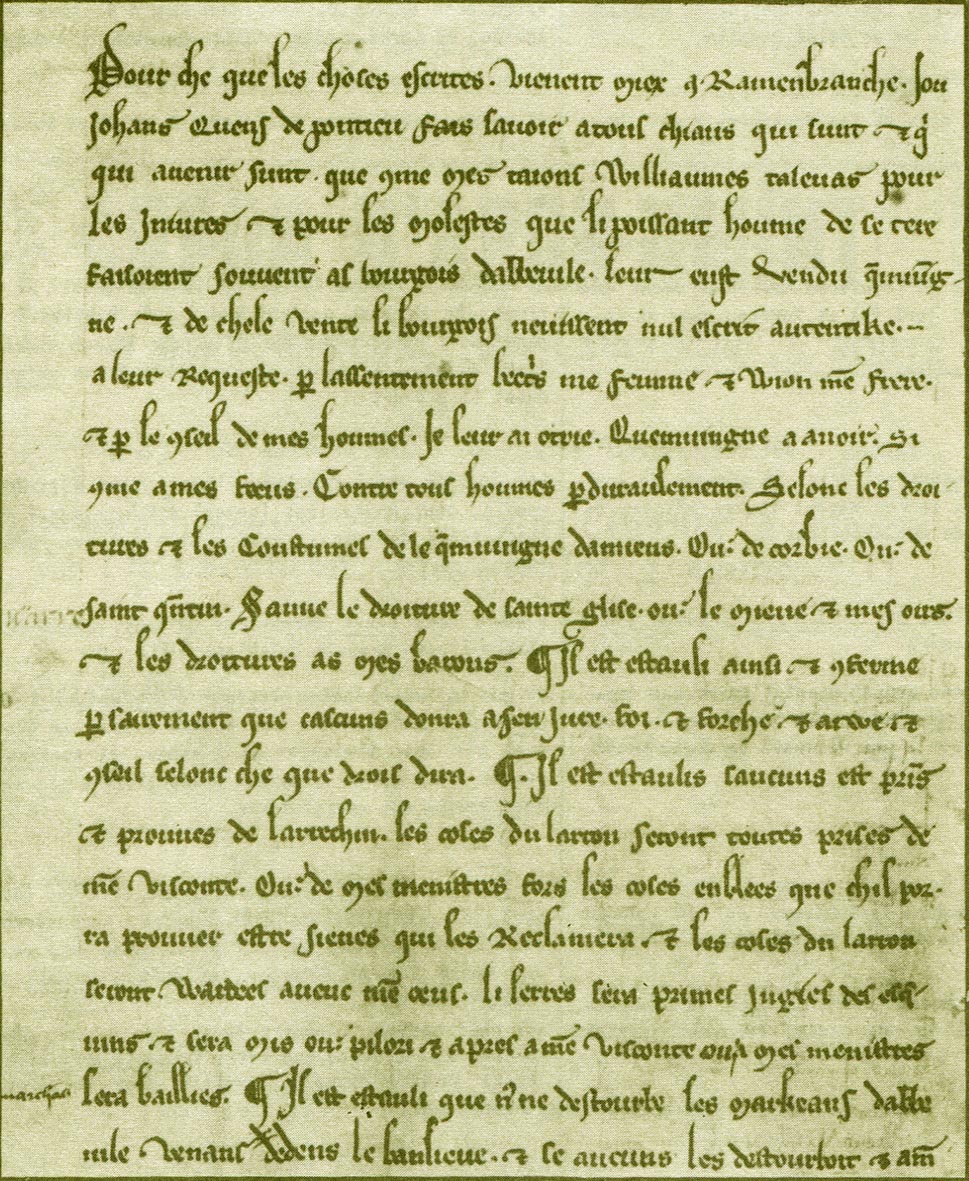 Pour che que les choses escrites. vienent miex a. Ramenbranche. Jou
Johans Quens de pontieu fais savoir a tous chiaus qui sunt ⁊ q'
qui avenir sunt. que 9me mes taions Williaumes talevas pour
les Iniures ⁊ pour les molestes que li poissant houme de se tere
faisoient souvent as bourgois dabbevile. leur eust vendu q̄muīg-
ne. ⁊ de chele vente li bourgois neuissent nul escrit autentike.
a leur Requeste. p̱ lassentement me femme ⁊ Wion mē frere.
⁊ p̱ le 9seil de mes houmes. Je leur ai otrie. Quemuingne a avoir. Si
9me a mes foeus. Contre tous houmes p̱duraulement. Selonc les droi-
tures ⁊ les Coustumes de le q̄muingne damiens. Ou. de corbie. Ou. de
saint q̄ntin. Sauve le droiture de sainte glise. ou. le mieue ⁊ mes oirs.
⁊ les droitures as mes barons. ¶ Il est estauli ainsi ⁊ 9ferme
p̱ sairement que cascuns donra a sen Jure. foi. ⁊ forche. ⁊ aiwe. ⁊
9seil selonc che que drois dira. ¶. Il est estaulis saucuns est pris
⁊ prouves de larrechin. les coses du larron seront toutes prises de
mē visconte. Ou. de mes menistres fors les coses enblees que chil por-
ra prouver estre sienes qui les Reclamera. ⁊ les coses du larron
seront. Wardees aveuc mē oeus. li lerres sera primes Jugies des esq̄-
vins ⁊ sera mis ou. pilori ⁊ apres a mē visconte ou a mes menistres
sera baillies. ¶ Il est estauli que ne destourbe les markeans dabbe
vile venans dedens le banlieue. ⁊ se aucuns les destourboit ⁊ am̄